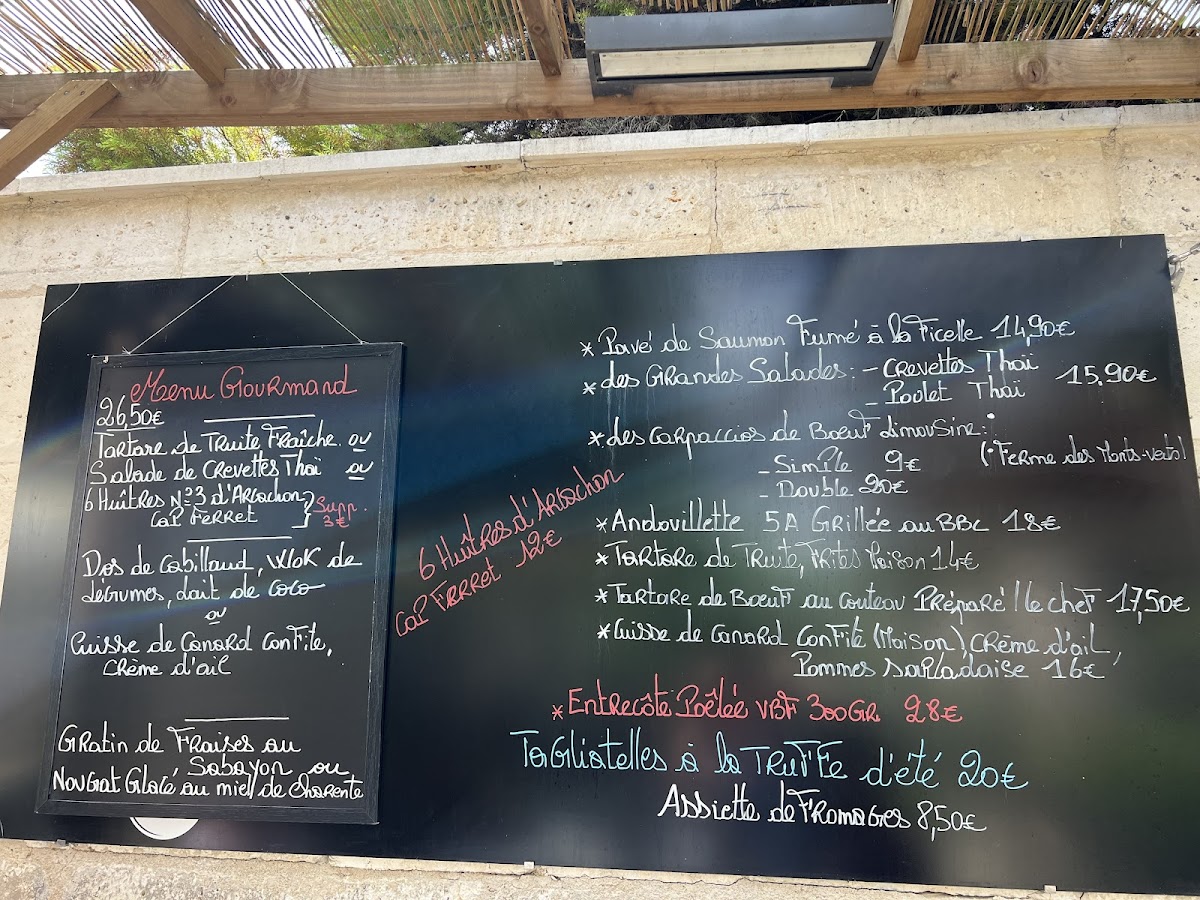 Menu Gourmand
26,50€
Tartare de Truite Fraîche ou
Salade de Crevettes Thaï ou
6 Huîtres N°3 d'Arcachon
Cap Ferret
Supp.
3€
Dos de Cabillaud, Wok de
légumes, lait de coco
ou
Cuisse de Canard Confite,
Crème d'ail
Gratin de Fraises au
Sabayon ou
Nougat Glacé au miel de Charente
6 Huîtres d'Arcachon
Cap Ferret 12€
* Pavé de Saumon Fumé à la Ficelle 14,90€
* des Grandes Salades: - Crevettes Thaï
- Poulet Thaï 15.90€
* des Carpaccios de Bœuf Limousine:
- Simple 9€ (Ferme des Monts-Verts)
- Double 20€
* Andouillette 5A Grillée au BBC 18€
* Tartare de Truite, Frites Maison 14€
* Tartare de Bœuf au Couteau Préparé / le chef 17,50€
* Cuisse de Canard Confite (Maison), Crème d'ail,
Pommes Sarladaise 16€
* Entrecôte Poêlée VBF 300Gr 28€
Tagliatelles à la Truffe d'été 20€
Assiette de Fromages 8,50€